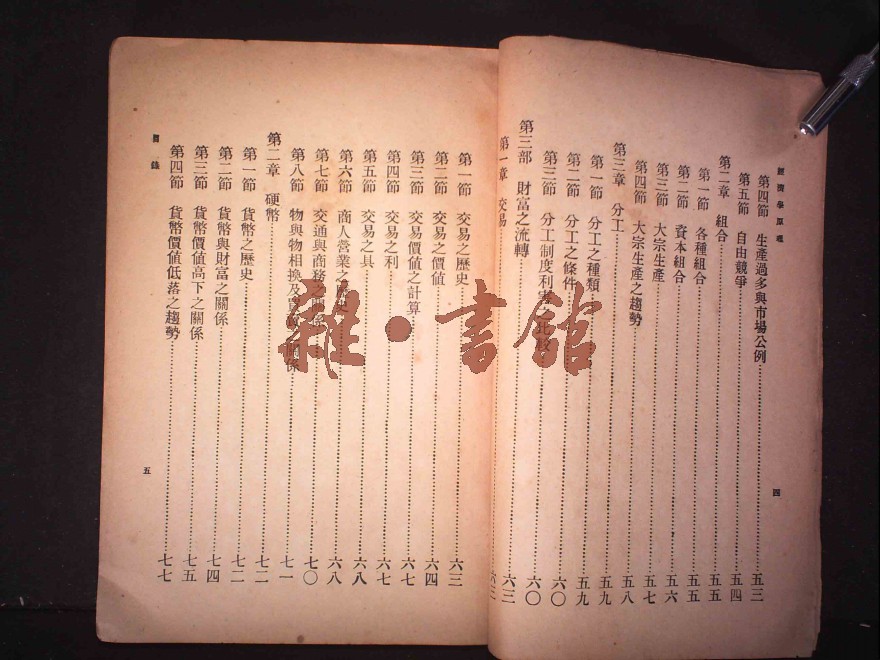 經濟學原理
第四節 生產過多與市場公例 五三
第五節 自由競爭 五四
第二章 組合 五五
第一節 各種組合 五五
第二節 資本組合 五六
第三節 大宗生產 五七
第四節 大宗生產之趨勢 五八
第三章 分工 五九
第一節 分工之種類 五九
第二節 分工之條件 六〇
第三節 分工制度利害之比較 六〇
第三部 財富之流轉 六三
第一章 交易 六三
四
第一節 交易之歷史 六三
第二節 交易之價値 六四
第三節 交易價値之計算 六七
第四節 交易之利 六七
第五節 交易之具 六八
第六節 商人營業之歷史 六八
第七節 交通與商務之關係 七〇
第八節 物與物相換及 關係 七一
第二章 硬幣 七二
第一節 貨幣之歷史 七二
第二節 貨幣與財富之關係 七四
第三節 貨幣價値高下之關係 七五
第四節 貨幣價値低落之趨勢 七七
目錄
五
雜·書館